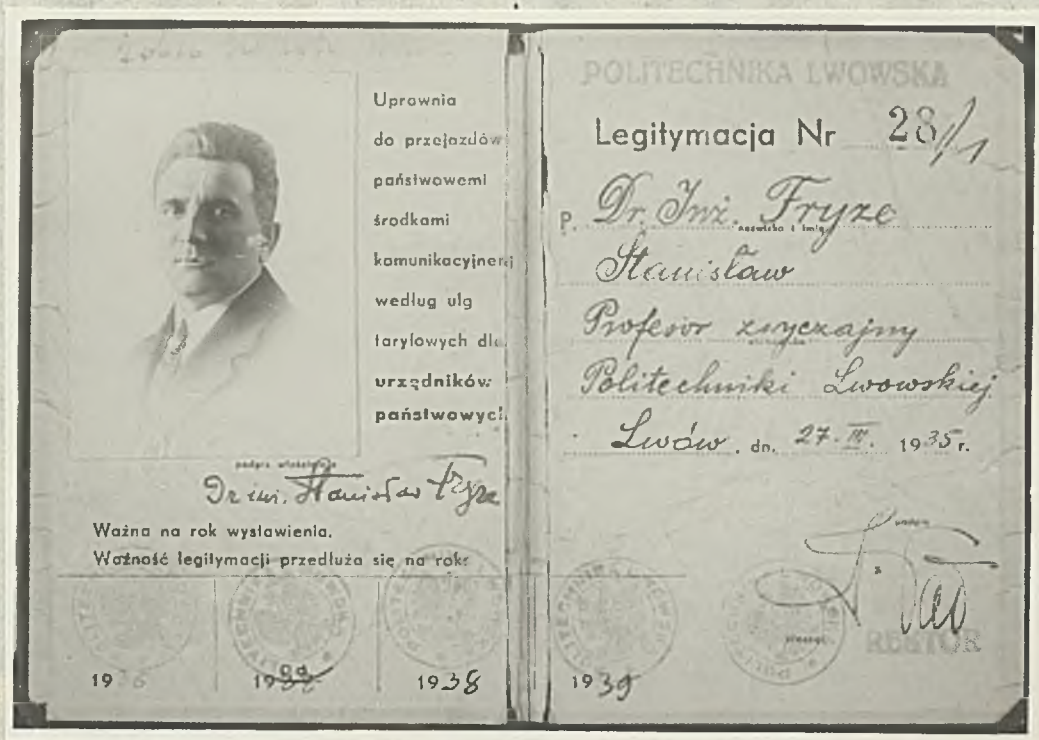 Uprawnia
do przejazdów
państwowemi
środkami
komunikacyjnemi
według ulg
taryfowych dla
urzędników
państwowych.
podpis właściciela
Dr inż. Stanisław Fryze
Ważna na rok wystawienia.
Ważność legitymacji przedłuża się na rok:
1936
19
1938
1939
POLITECHNIKA LWOWSKA
Legitymacja Nr 28/1
P. Dr. Inż. Fryze
nazwisko i imię
Stanisław
Profesor zwyczajny
Politechniki Lwowskiej
Lwów, dn. 27. III. 1935 r.
REKTOR